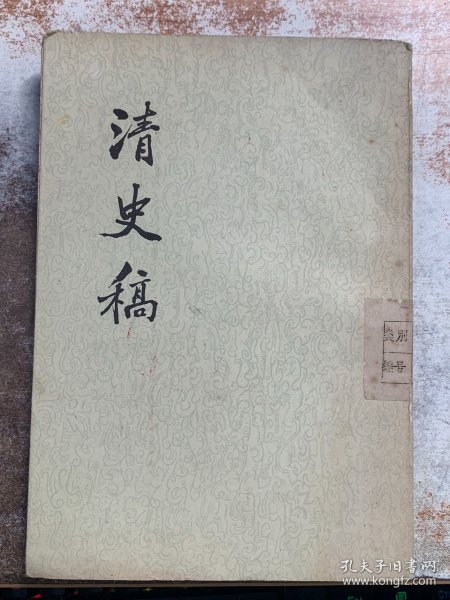 清史稿
类别
编号
孔夫子旧书网
www.kongfz.com